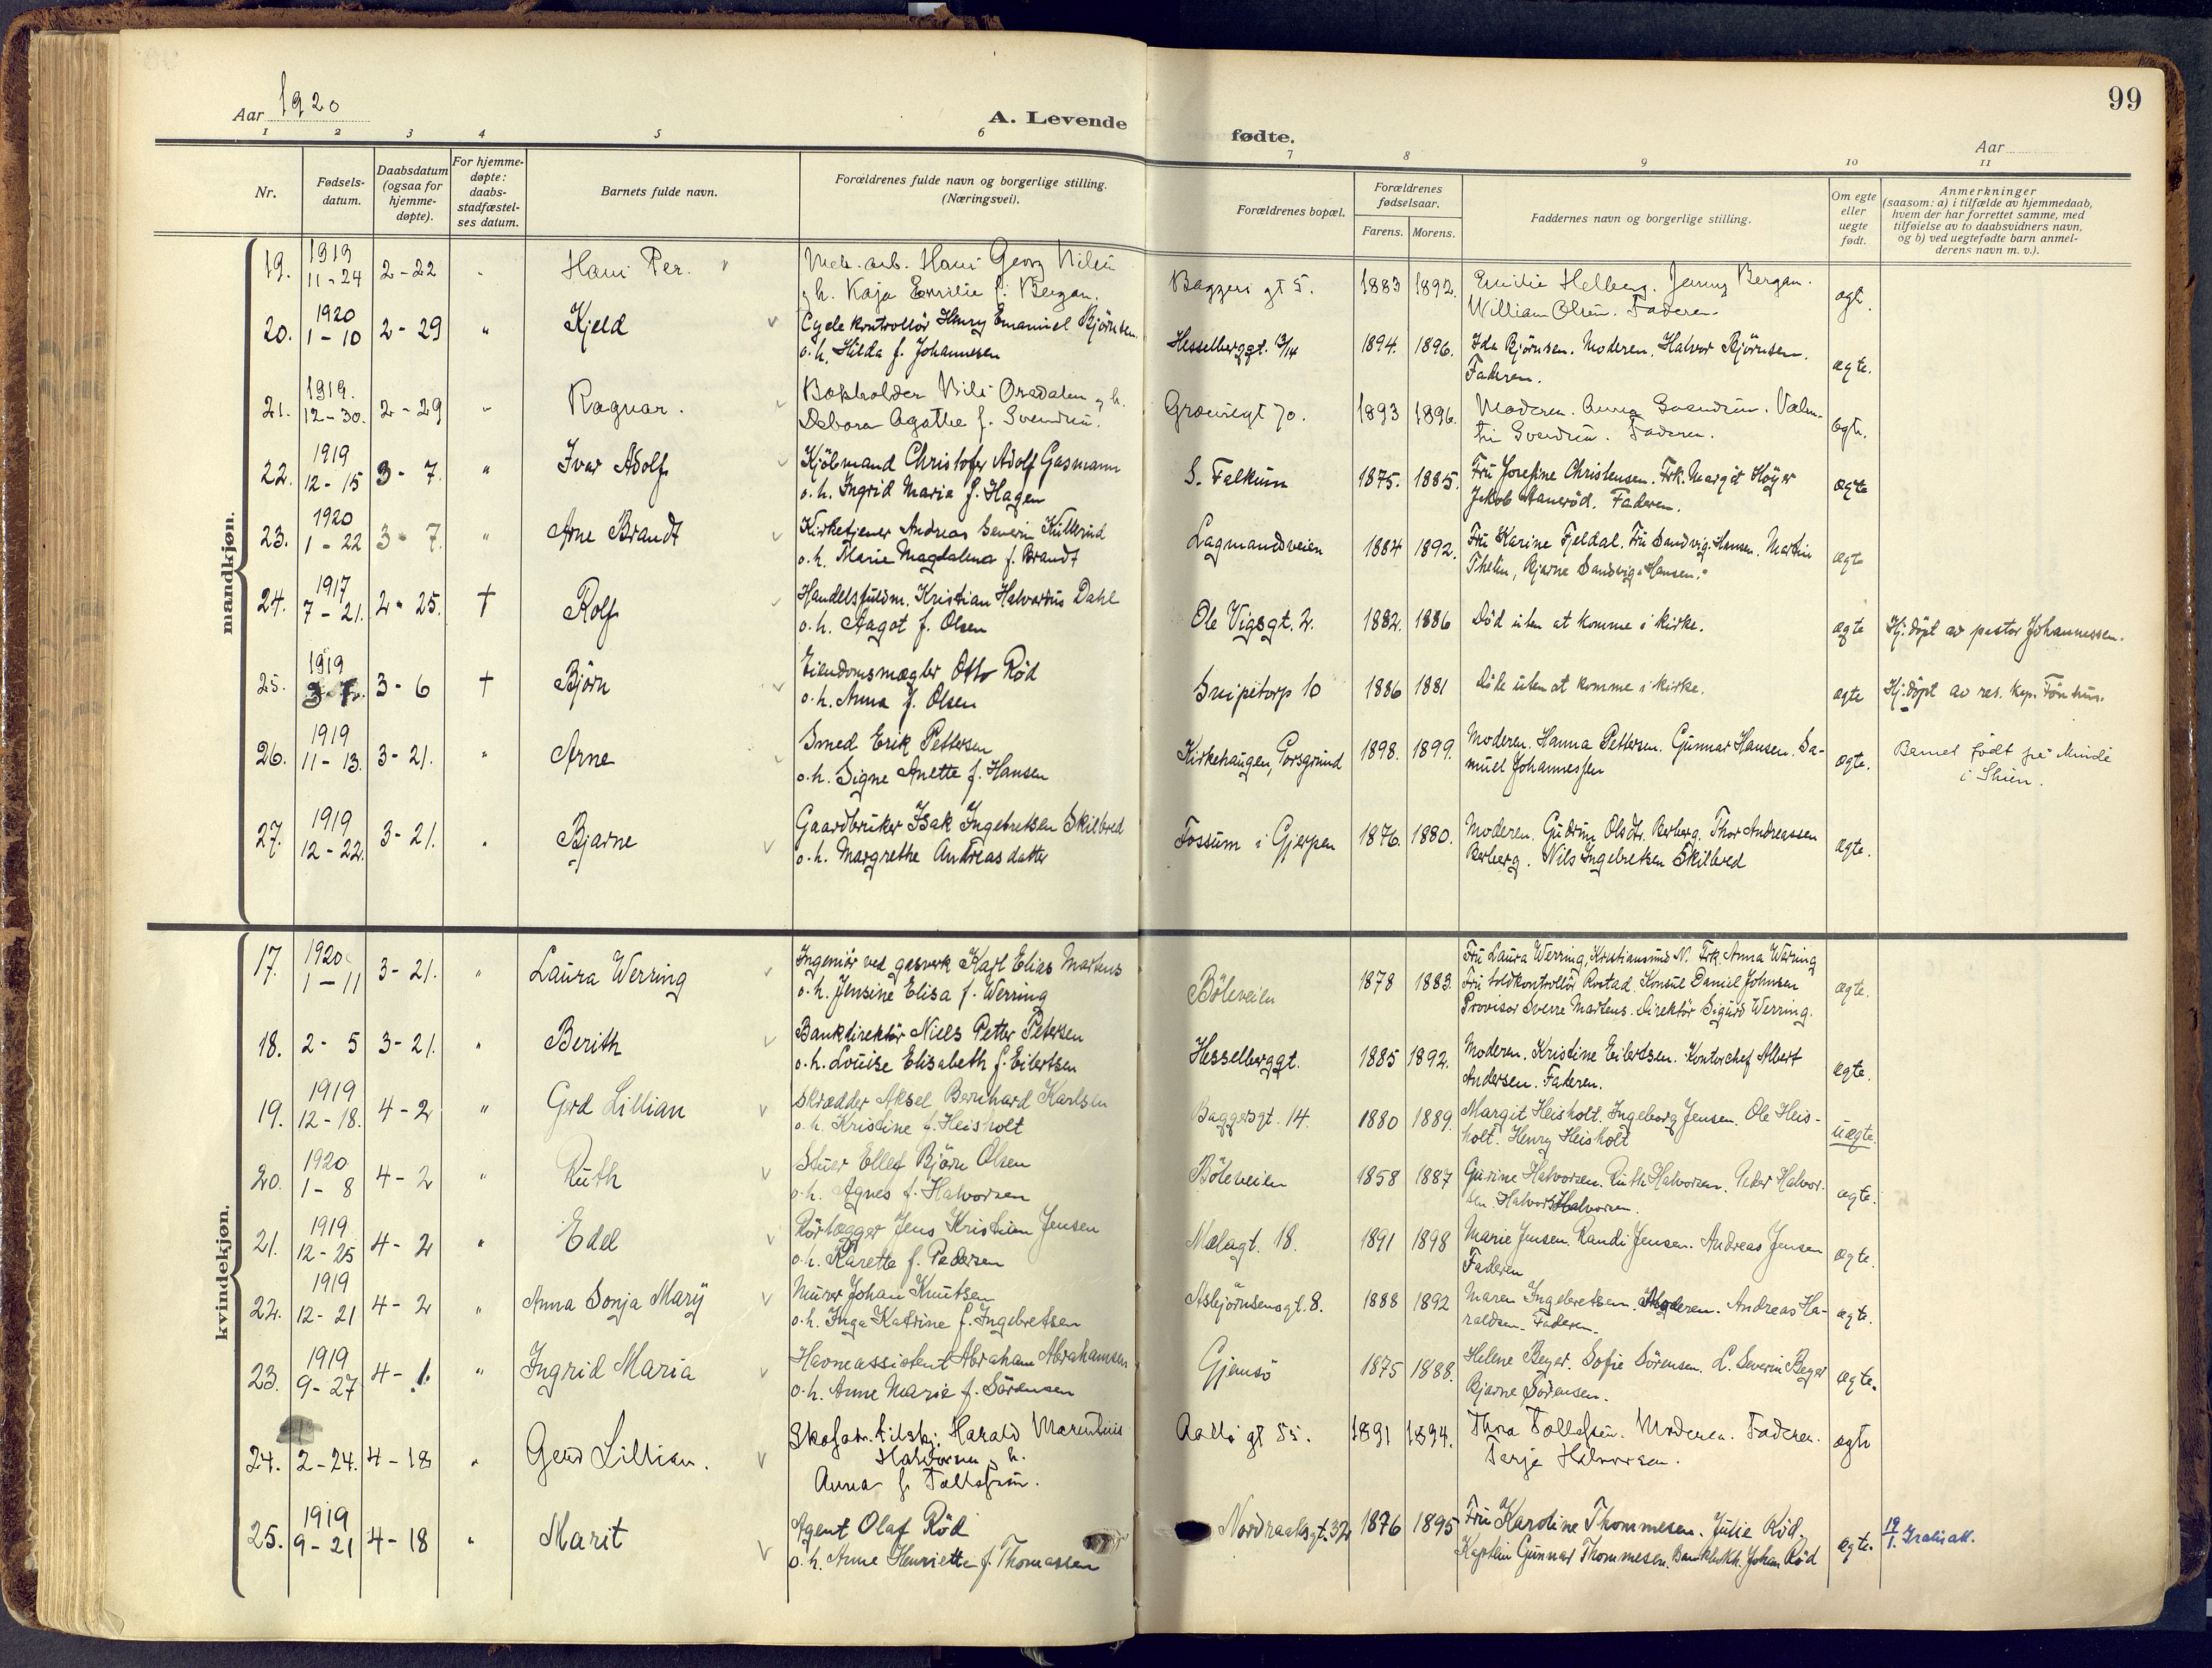 Aar 1920
A. Levende
fødte.
Aar
99
1 2 3 4 5 6 7 8 9 10 11
Nr.
Fødsels-
datum.
Daabsdatum
(ogsaa for
hjemme-
døpte).
For hjemme-
døpte:
daabs-
stadfæstel-
ses datum.
Barnets fulde navn.
Forældrenes fulde navn og borgerlige stilling.
(Næringsvei).
Forældrenes bopæl.
Forældrenes
fødselsaar.
Farens. Morens.
Faddernes navn og borgerlige stilling.
Om egte
eller
uegte
født.
Anmerkninger
(saasom: a) i tilfælde av hjemmedaab,
hvem der har forrettet samme, med
tilføielse av to daabsvidners navn,
og b) ved uegtefødte barn anmel-
derens navn m. v.).
mandkjøn.
19. 1919 11-24 2-22 Hans Per. Mek. arb. Hans Georg Nilsen
o h. Kaja Emilie f. Bergan.
Baggers gt 5. 1883 1892. Emilie Helberg. Jenny Bergan.
William Olsen. Faderen. egte.
20. 1920 1-10 2-29 " Kjeld Cyclekontrollör Henry Emanuel Björnsen
o. h. Hilda f. Johannesen
Hesselberggt. 13/14 1894. 1896. Ida Björnsen. Moderen. Halvor Björnsen.
Faderen. ægte.
21. 1919. 12-30. 2-29 " Ragnar. Bokholder Nils Oredalen o h.
Debora Agathe f. Svendsen.
Gravensgt 70. 1893 1896. Moderen. Anna Svendsen. Valen-
tin Svendsen. Faderen. egte.
22. 1919 12-15 3-7. " Ivar Adolf Kjöbmand Christofer Adolf Gasmann
o. h. Ingrid Maria f. Hagen
S. Falkum 1875. 1885. Fru Josefine Christensen. Frk. Margit Höyer
Jakob Aaneröd. Faderen. ægte
23. 1920 1-22 3-7. " Arne Brandt Kirketjener Andreas Severin Kullerud
o. h. Marie Magdalena f. Brandt
Lagmandsveien 1884 1892. Fru Karine Fjeldal. Fru Sandvig-Hansen. Martin
Thelin, Bjarne Sandvig-Hansen. ægte
24. 1917 7-21. 2-25. † Rolf Handelsfuldm. Kristian Halvardus Dahl
o. h. Aagot f. Olsen
Ole Vigsgt. 2. 1882. 1886 Död uten at komme i kirke. ægte Hj. döpt av pastor Johannessen.
25. 1919 3-7. 3-6 † Björn Eiendomsmægler Otto Röd
o. h. Anna f. Olsen
Snipetorp 10 1886 1881 Döde uten at komme i kirke. ægte Hj. döpt av res. kap. Tönnesen.
26. 1919 11-13. 3-21. " Arne Smed Erik Pettersen
o. h. Signe Anette f. Hansen
Kirkehaugen, Porsgrund 1898. 1899. Moderen. Hanna Pettersen. Gunnar Hansen. Sa-
muel Johannessen ægte. Barnet född på Minde
i Skien.
27. 1919 12-22. 3-21. " Bjarne Gaardbruker Isak Ingebretsen Skilbred
o. h. Margrethe Andreasdatter
Fossum i Gjerpen 1876. 1880. Moderen. Gudrun Olsdtr. Berberg. Thor Andreassen
Berberg. Nils Ingebretsen Skilbred ægte.
kvindekjøn.
17. 1920 1-11 3-21. " Laura Werring Ingeniör ved gasverk Karl Elias Martens
o. h. Jensine Elisa f. Werring
Böleveien 1878 1883. Fru Laura Werring, Kristiansund N. Frk. Anna Waring
Fru toldkontrollör Rostad. Konsul Daniel Johnsen
Provisor Sverre Martens. Direktör Sigurd Werring. ægte.
18. 2-5 3-21. " Berith Bankdirektör Niels Petter Petersen
o. h. Louise Elisabeth f. Eilertsen
Hesselberggt. 1885 1892. Moderen. Kristine Eilertsen. Kontorchef Albert
Andersen. Faderen. ægte.
19. 1919 12-18. 4-2 " Gerd Lillian Skrædder Aksel Bernhard Karlsen
o. h. Kristine f. Heisholt
Baggersgt. 14. 1880 1889. Margit Heisholt. Ingeborg Jensen. Ole Heis-
holt. Henry Heisholt uægte.
20. 1920 1-8 4-2 " Ruth Stuer Ellef Björn Olsen
o. h. Agnes f. Halvorsen
Böleveien 1858 1887 Gurine Halvorsen. Ruth Halvorsen. Peder Halvor-
sen. Halvor Halvorsen. ægte.
21. 1919. 12-25 4-2 " Edel Rörlægger Jens Kristian Jensen
o. h. Karette f. Pedersen
Mælagt. 18. 1891 1898 Marie Jensen. Randi Jensen. Andreas Jensen
Faderen ægte.
22. 1919 12-21 4-2 " Anna Sonja Mary Murer Johan Knutsen
o. h. Inga Katrine f. Ingebretsen
Asbjörnsensgt. 8. 1888 1892 Maren Ingebretsen. Moderen. Andreas Ha-
raldsen. Faderen. ægte.
23. 1919 9-27 4-1. " Ingrid Maria Havneassistent Abraham Abrahamsen
o. h. Anne Marie f. Sörensen
Gjemsö 1875 1888. Helene Beyer. Sofie Sörensen. L. Severin Beyer
Bjarne Sörensen. ægte.
24. 2-24. 4-18 " Gerd Lillian. Skofabr. tilskj. Harald Marentius
Halvorsen o h.
Anna f. Tollefsen.
Aalls gt 55. 1891 1894. Thora Tollefsen. Moderen. Faderen.
Terje Halvorsen. egte
25. 1919 9-21 4-18 " Marit Agent Olaf Röd
o. h. Anne Henriette f. Thomassen
Nordraaksgt. 32 1876 1895 Fru Karoline Thommesen. Julie Röd.
Kaptein Gunnar Thommesen. Bankbokh. Johan Röd ægte. 19/1. Gratisatt.